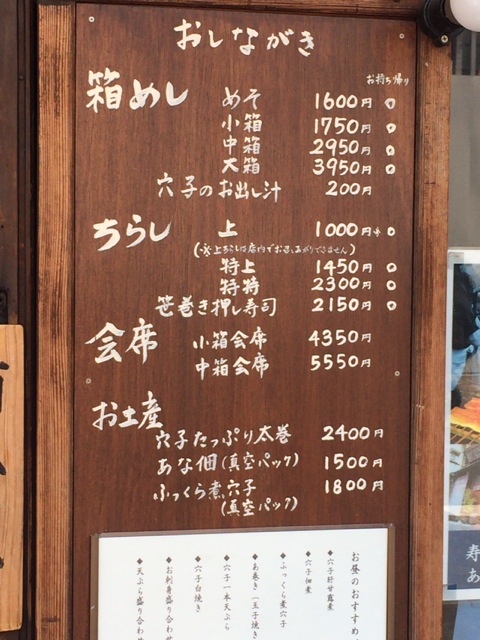 おしながき
お持ち帰り
箱めし めそ 1600円 ○
小箱 1750円 ○
中箱 2950円 ○
大箱 3950円 ○
穴子のお出し汁 200円
ちらし 上 1000円 ○
(※上ちらしは店内でお召しあがりできません)
特上 1450円 ○
特特 2300円 ○
笹巻き押し寿司 2150円 ○
会席 小箱会席 4350円
中箱会席 5550円
お土産
穴子たっぷり太巻 2400円
あな佃(真空パック) 1500円
ふっくら煮穴子 1800円
(真空パック)
お昼のおすすめ
◆穴子肝甘露煮
◆穴子佃煮
◆ふっくら煮穴子
◆あ巻き(玉子焼き
◆穴子一本天ぷら
◆穴子白焼き
◆お刺身盛り合わせ
◆天ぷら盛り合わせ
寿
あ